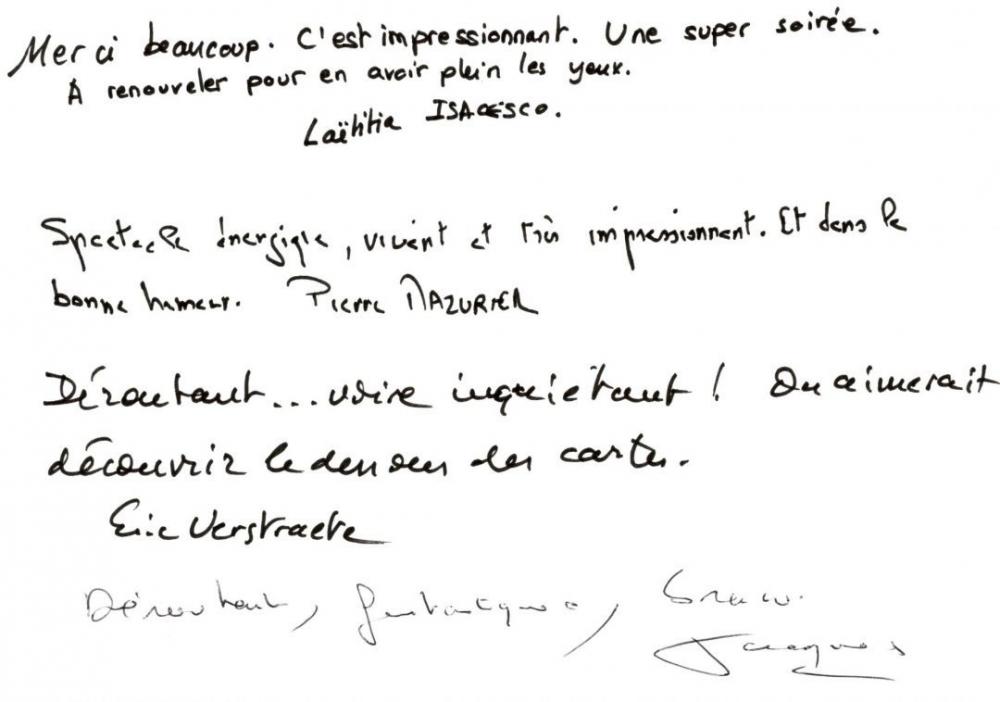 Merci beaucoup. C'est impressionnant. Une super soirée.
A renouveler pour en avoir plein les yeux.
Laëtitia ISACESCO.
Spectacle énergique, vivant et très impressionnant. Et dans la
bonne humeur. Pierre MAZURIER
Déroutant... voire inquiétant ! On aimerait
découvrir le dessous des cartes.
Eric Verstraete
Déroutant, fantastique, Bravo.
Jacques